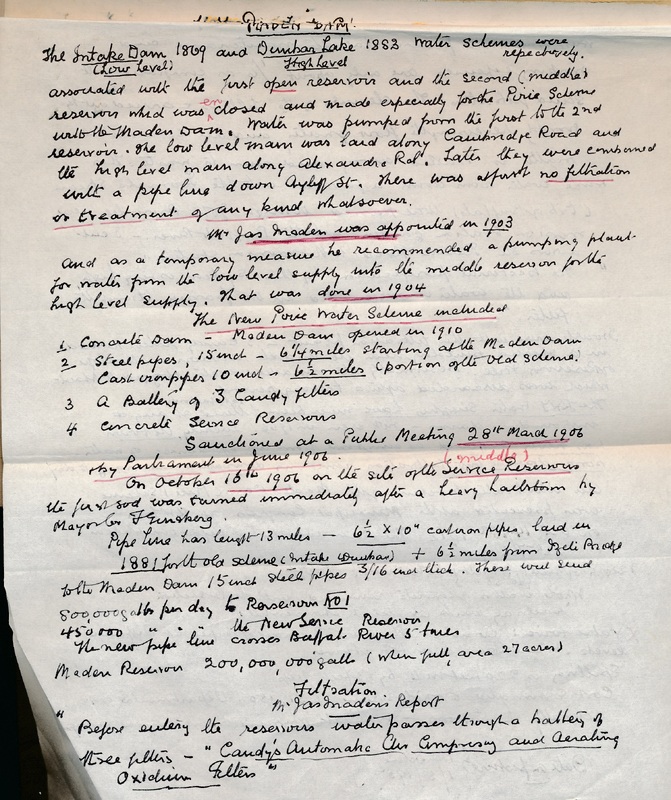 MADEN DAM
The Intake Dam 1869 and Dunbar Lake 1883 water schemes were
(Low Level) High Level repectively.
associated with the first open reservoir and the second (middle)
reservoir which was enclosed and made especially for the Pirie Scheme
with the Maden Dam. Water was pumped from the first to the 2nd
reservoir. The low level main was laid along Cambridge Road and
the high level main along Alexandra Rd. Later they were combined
with a pipe line down Ayliff St. There was at first no filtration
or treatment of any kind whatsoever.
Mr Jas Maden was appointed in 1903
and as a temporary measure he recommended a pumping plant
for water from the low level supply into the middle reservoir for the
high level supply. That was done in 1904
The New Pirie Water Scheme included
1. Concrete Dam - Maden Dam, opened in 1910
2 Steel pipes, 15 inch - 6¼ miles starting at the Maden Dam
Cast iron pipes 10 inch - 6½ miles (portion of the Old Scheme.
3 A Battery of 3 Candy filters
4 Concrete Service Reservoirs
Sanctioned at a Public Meeting 28th March 1906
by Parliament in June 1906.
(middle)
On October 16th 1906 on the site of the Service Reservoirs
the first sod was turned immediately after a heavy hailstorm by
Mayor F Ginsberg.
Pipe line has length 13 miles - 6½ x 10" cast iron pipes, laid in
1881 for the old scheme (Intake Dunbar) + 6½ miles from Bridge
to the Maden Dam 15 inch steel pipes 3/16 inch thick. These will send
800,000 galls per day to Reservoir No 1
450,000 " " " the New Service Reservoir
The new pipe line crosses Buffalo River 5 times
Maden Reservoir 200,000,000 galls (when full, area 27 acres)
Filtration
Mr Jas Maden's Report
" Before entering the reservoirs water passes through a battery of
three filters - "Candy's Automatic Air Compressing and Aerating
Oxidium Filters"